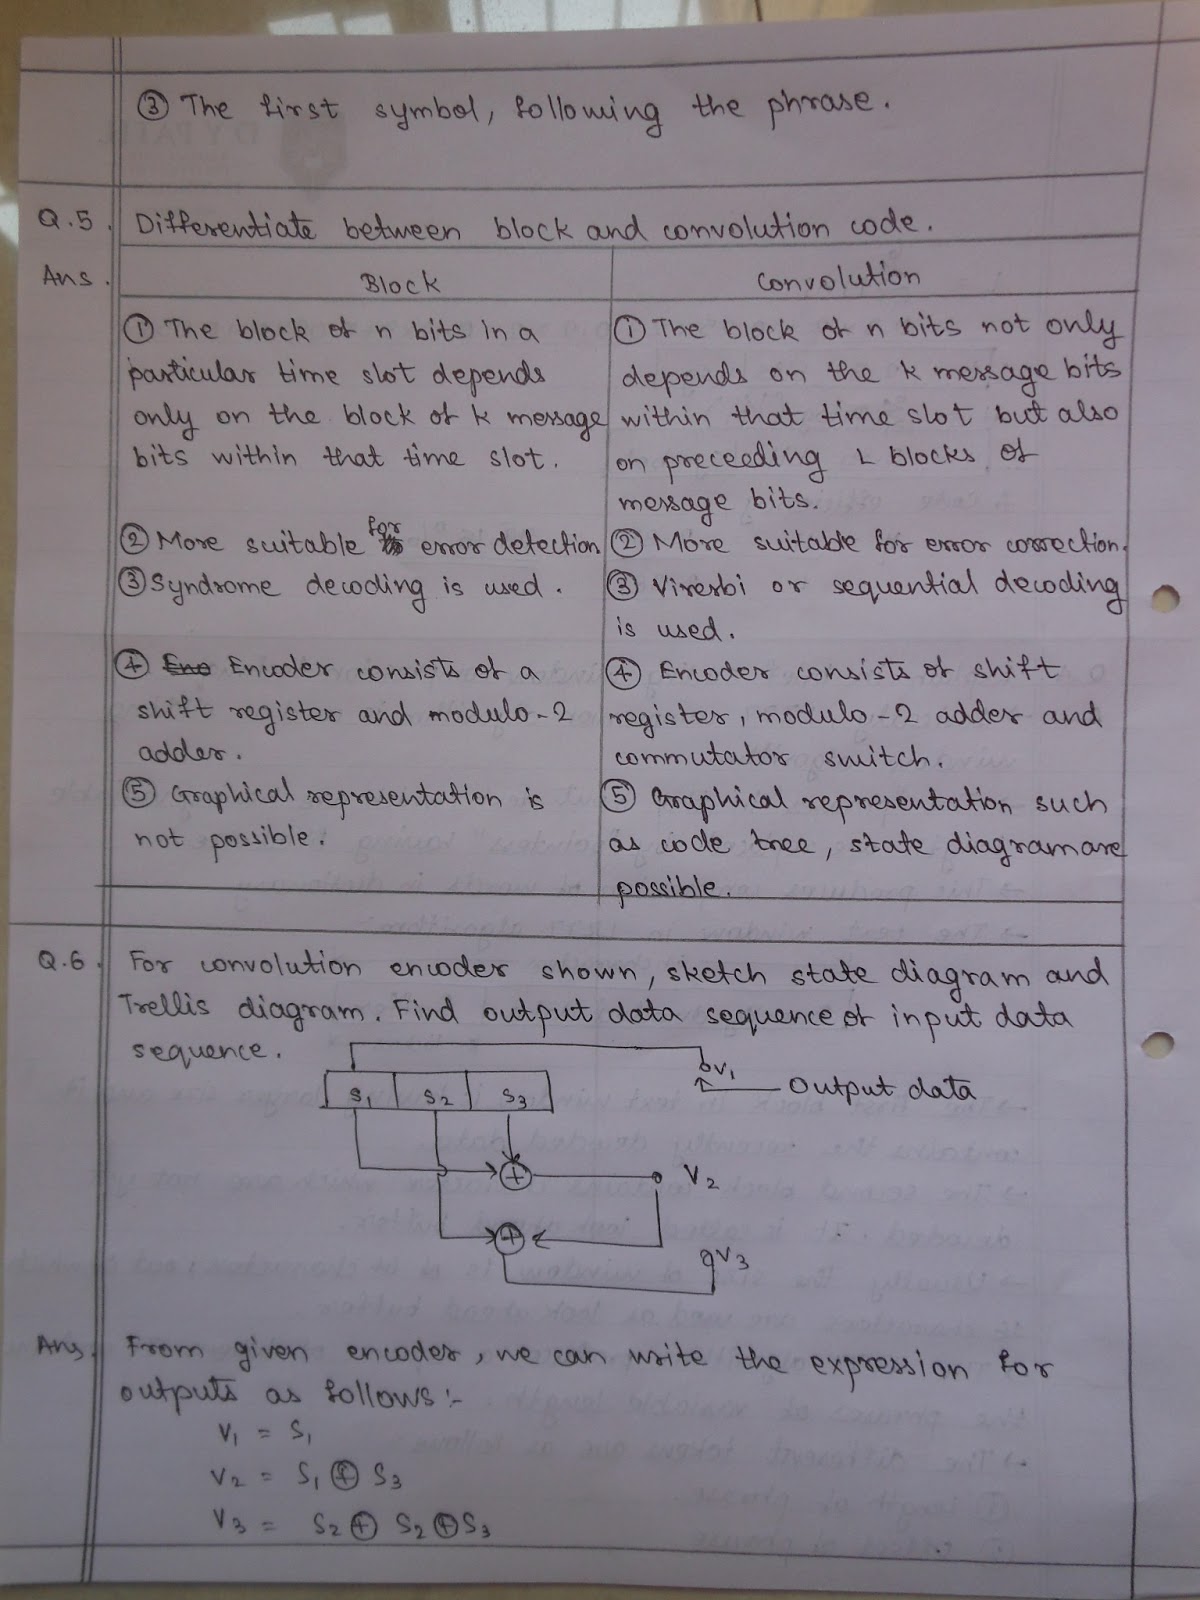 ③ The first symbol, following the phrase.
Q.5. Differentiate between block and convolution code.
Ans.
Block
① The block of n bits in a
particular time slot depends
only on the block of k message
bits within that time slot.
② More suitable for error detection
③ Syndrome decoding is used.
④ Eno Encoder consists of a
shift register and modulo-2
adder.
⑤ Graphical representation is
not possible.
Convolution
① The block of n bits not only
depends on the k message bits
within that time slot but also
on preceeding L blocks of
message bits.
② More suitable for error correction.
③ Virerbi or sequential decoding
is used.
④ Encoder consists of shift
register, modulo-2 adder and
commutator switch.
⑤ Graphical representation such
as code tree, state diagram are
possible.
Q.6. For convolution encoder shown, sketch state diagram and
Trellis diagram. Find output data sequence of input data
sequence.
V1
S1 S2 S3
Output data
+ V2
+
V3
Ans. From given encoder, we can write the expression for
outputs as follows:-
V1 = S1
V2 = S1 ⊕ S3
V3 = S2 ⊕ S2 ⊕ S3